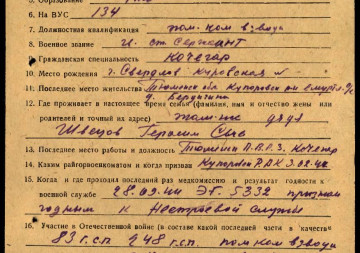 6. На ВУС 134
7. Должностная квалификация пом. ком взвода
8. Военное звание гв. ст. Сержант
9. Гражданская специальность Кочегар
10. Место рождения г. Свердлов Кировская
11. Последнее место жительства Тюменская обл Куперовск
12. Где проживает в настоящее время семья (фамилия, имя и отчество жены или
родителей и точный их адрес) дядя
Швецов Герасим
13. Последнее место работы и должность Тюмень Кочегар
14. Каким райгорвоенкоматом и когда призван РВК
15. Когда и где проходил последний раз медкомиссию и результат годности к
военной службе 28.09.44 ЭГ. 5332 признан
годным к Нестроевой службе
16. Участие в Отечественной войне (в составе какой последней части в качестве
83 г.сп 248 г.сп. пом ком взвода